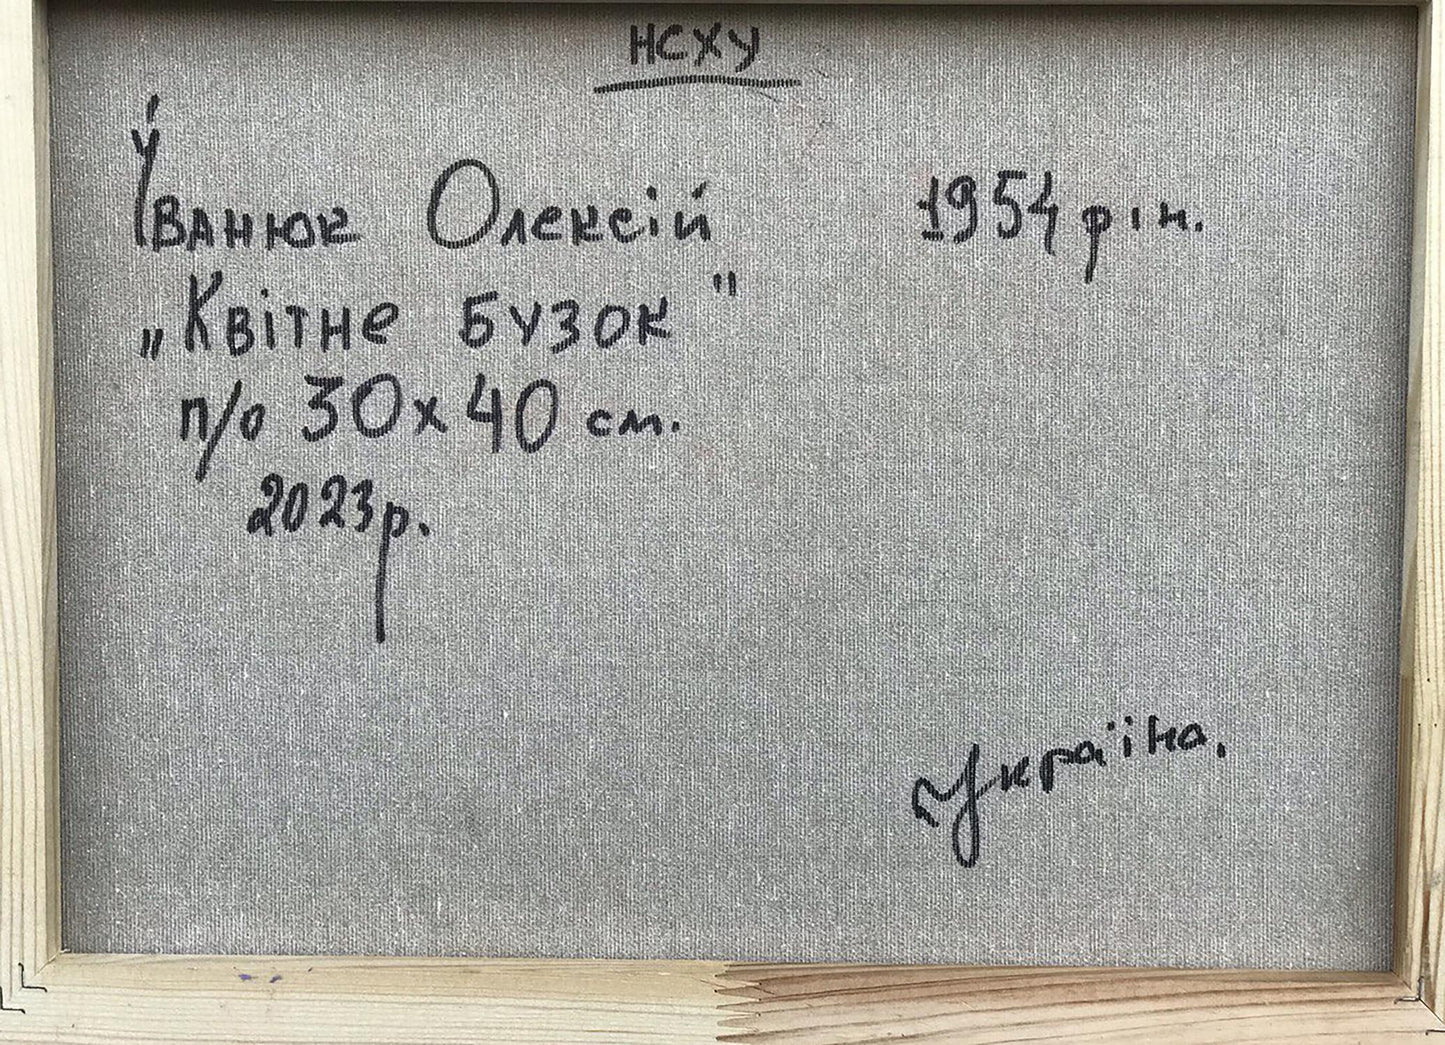 НСХУ
Іванюк Олексій 1954 р.н.
„Квітне бузок"
п/о 30х40 см.
2023р.
Україна.